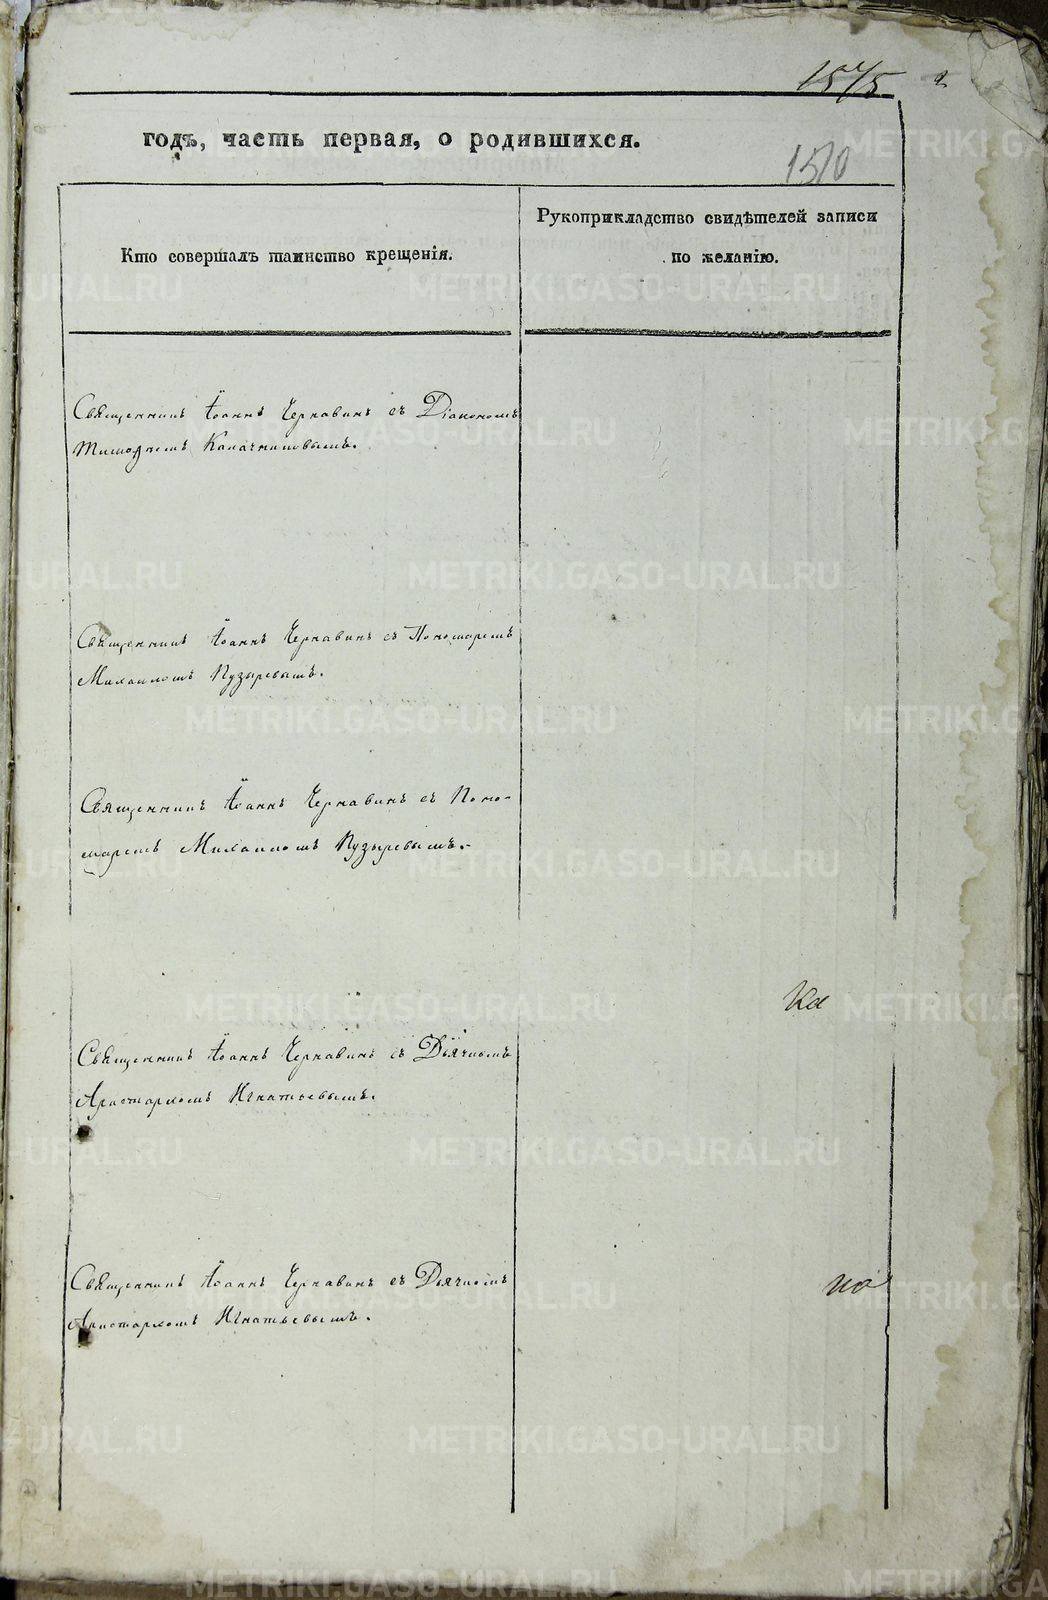 1575 2
годъ, часть первая, о родившихся.
1510
Кто совершалъ таинство крещенія.
Рукоприкладство свидѣтелей записи
по желанію.
Священникъ Іоаннъ Чернавинъ съ Діакономъ
Тимофеемъ Калачниковымъ.
Священникъ Іоаннъ Чернавинъ съ Пономаремъ
Михаиломъ Пузыревымъ.
Священникъ Іоаннъ Чернавинъ съ Поно-
маремъ Михаиломъ Пузыревымъ.
Священникъ Іоаннъ Чернавинъ съ Дьячкомъ
Аристархомъ Игнатьевымъ.
Священникъ Іоаннъ Чернавинъ съ Дьячкомъ
Аристархомъ Игнатьевымъ.
METRIKI.GASO-URAL.RU